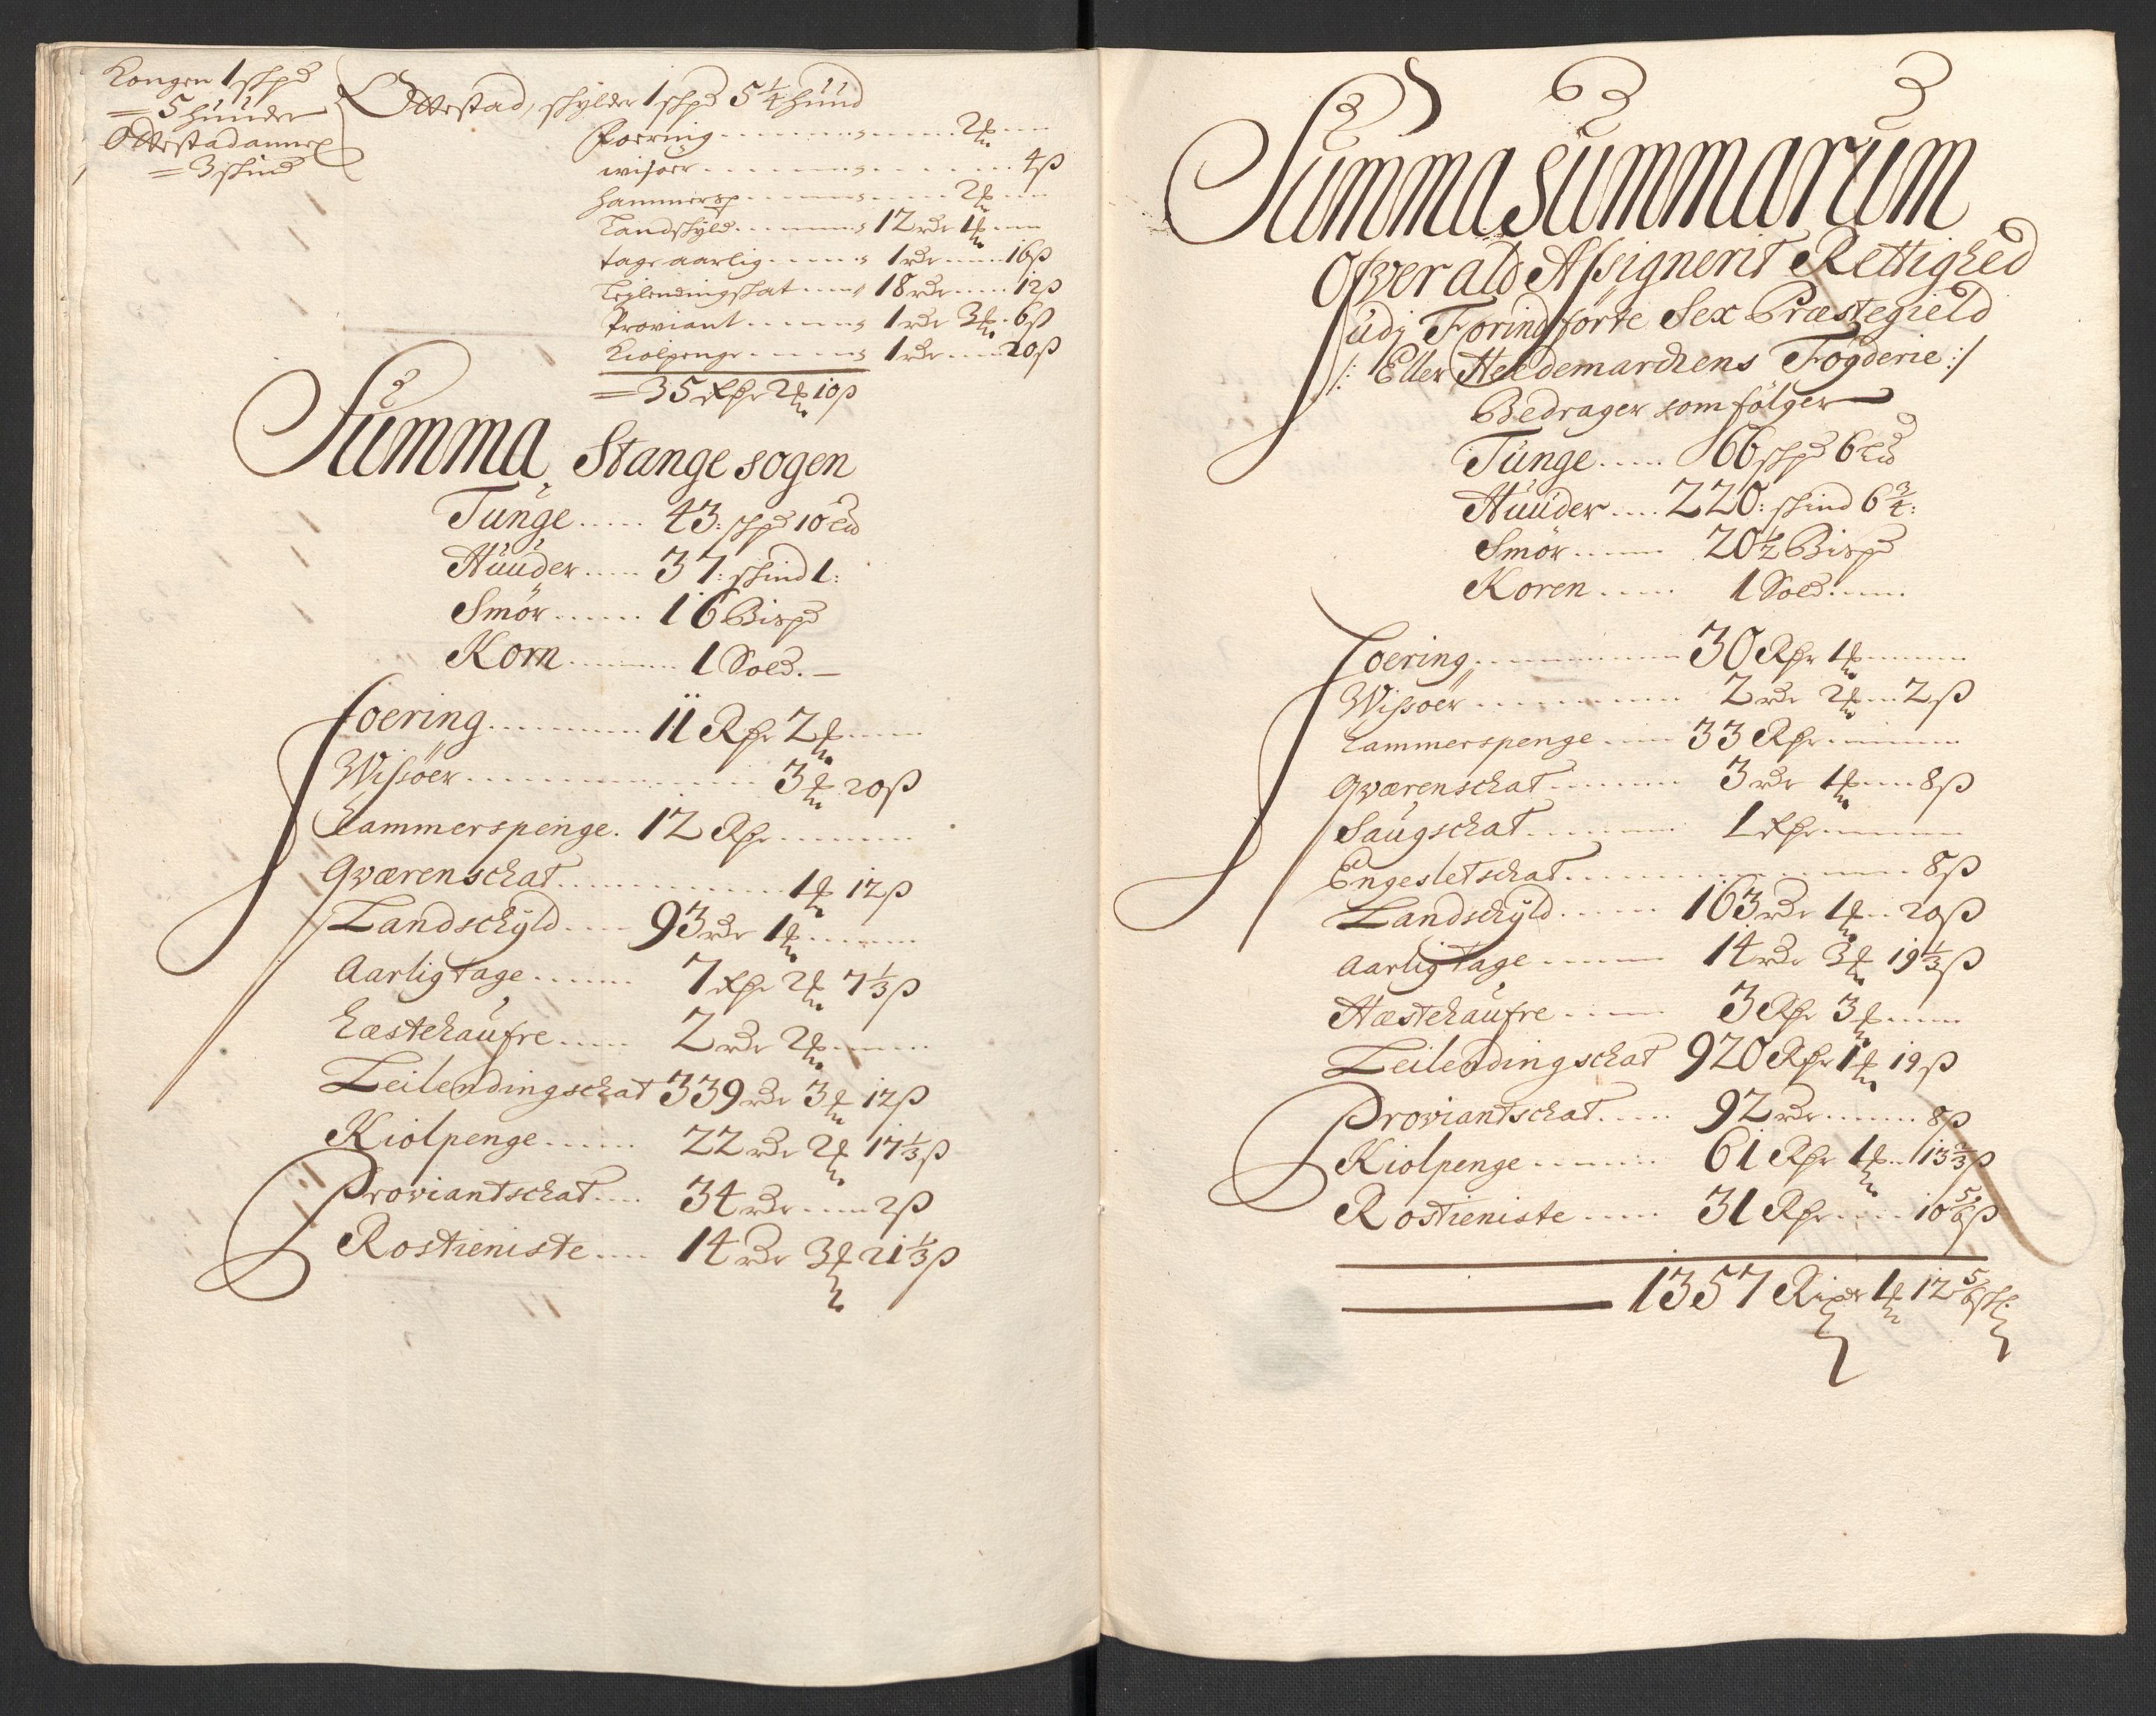 Kongen 1 schp
= 5 huuder
Ottestad annex
= 3 skind
Ottestad, skylder 1 schp 5 1/4 huud
Foering 2 ₰
wisøer 4 ß
hammersp 2 ₰
Landskyld 12 rdr 1 ₰
tage aarlig 1 rdr 16 ß
Leylendingskat 18 rdr 12 ß
Proviant 1 rdr 3 ₰ 6 ß
Kiolpenge 1 rdr 20 ß
= 35 Rdr 2 ₰ 10 ß
Summa Stange sogen
Tunge 43: schp 10 Lb
Huuder 37: skind 1:
Smør 16 Bispd
Korn 1 Sold.
foering 11 Rdr 2 ₰
Wissøer 3 ₰ 20 ß
hammerspenge 12 Rdr
Qværenschat 1 ₰ 12 ß
Landschyld 93 rdr 1 ₰
Aarlig tage 7 Rdr 2 ₰ 7 1/3 ß
hæstehaufre 2 rdr 2 ₰
Leilendingschat 339 rdr 3 ₰ 12 ß
Kiolpenge 22 rdr 2 ₰ 17 1/3 ß
Proviantschat 34 rdr 2 ß
Rostieniste 14 rdr 3 ₰ 21 1/3 ß
Summa Summarum
Ofver ald Assignerit Rettighed
udj Foringførte Sex Præstegield
/: Eller Hedemarchens Fogderie :/
Bedrager som følger
Tunge 166 schp 6 Lb
Huuder 220: skind 6 3/4:
Smør 20 1/2 Bispd
Koren 1 Sold.
foering 30 Rdr 1 ₰
Wissøer 2 rdr 2 ₰ 2 ß
hammerspenge 33 Rdr
Qværenschat 3 rdr 1 ₰ 8 ß
Saugschat 1 Rdr
Engesletschat 8 ß
Landschyld 163 rdr 1 ₰ 20 ß
Aarlig Tage 14 rdr 3 ₰ 19 1/3 ß
Hæstehaufre 3 Rdr 3 ₰
Leilendingschat 920 Rdr 1 ₰ 19 ß
Proviantschat 92 rdr 8 ß
Kiolpenge 61 Rdr 1 ₰ 13 2/3 ß
Rostieniste 31 Rdr 10 5/6 ß
1357 Rixdr 1 ₰ 12 5/6 sk: